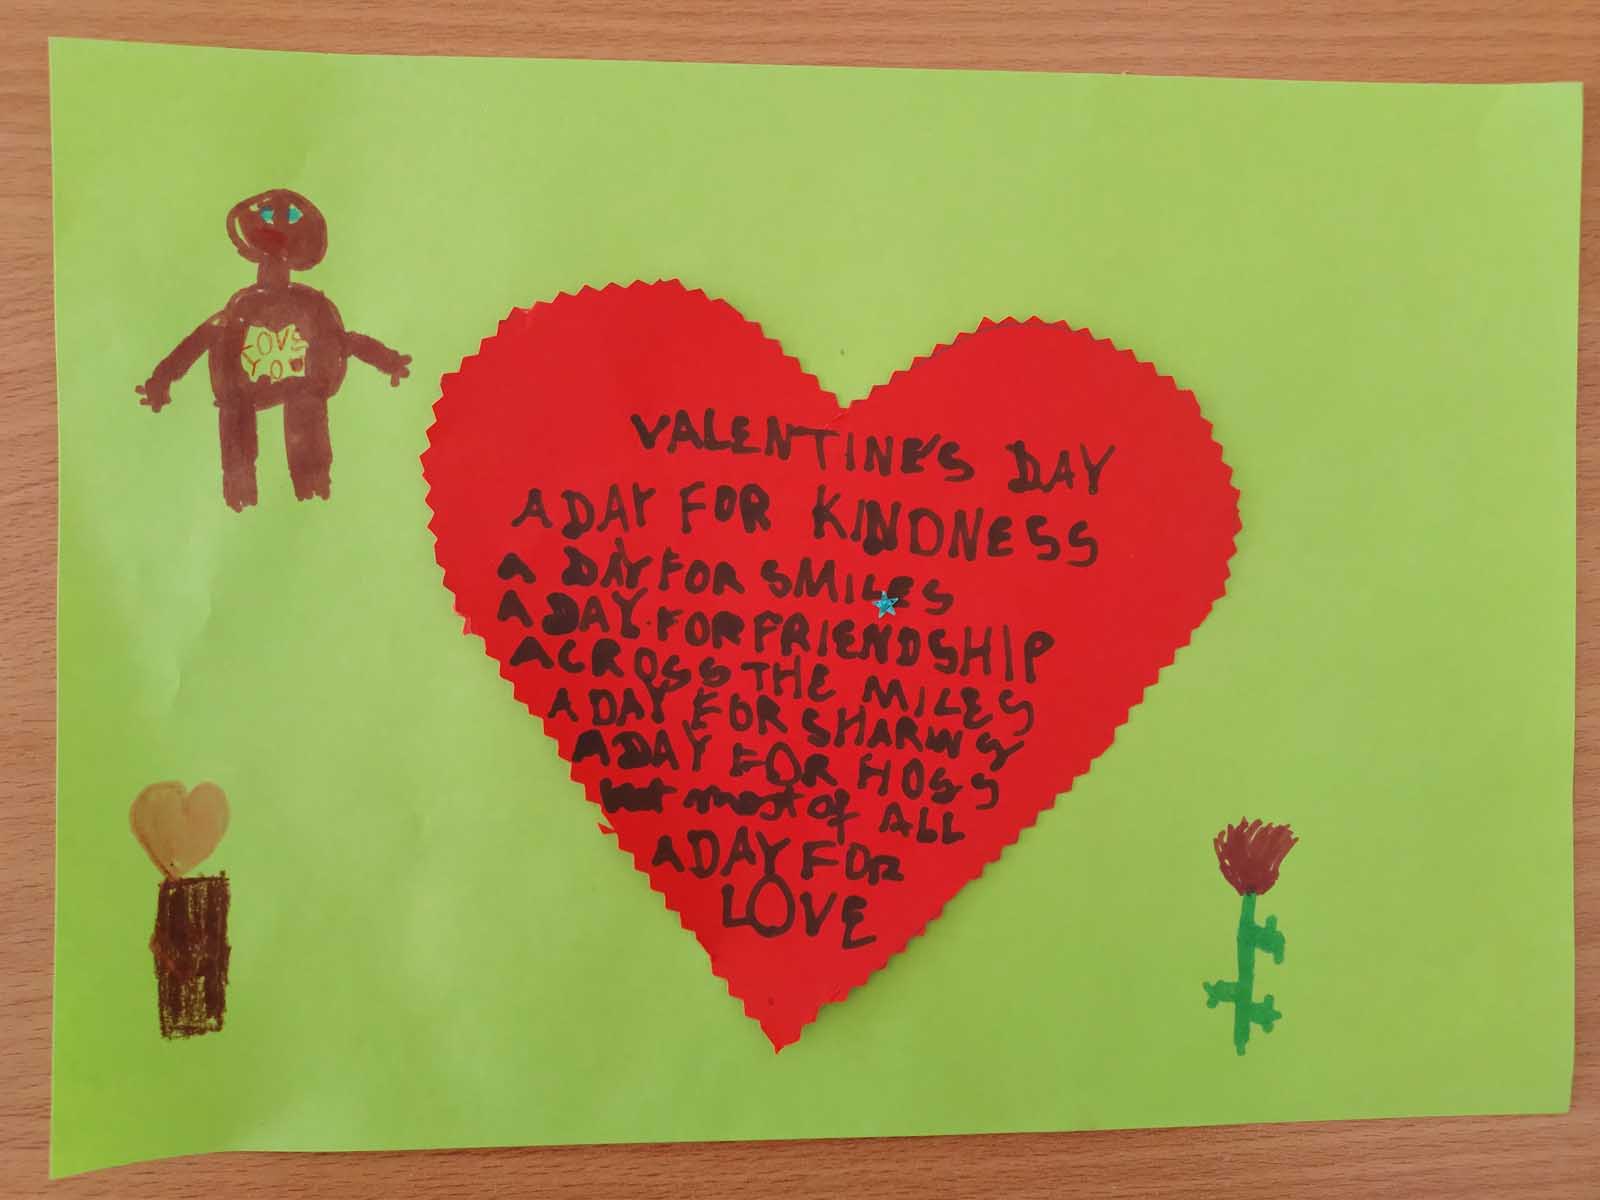 LOVE
YO
VALENTINE'S DAY
A DAY FOR KINDNESS
A DAY FOR SMILES
A DAY FOR FRIENDSHIP
ACROSS THE MILES
A DAY FOR SHARING
A DAY FOR HOGS
but most of ALL
A DAY FOR
LOVE